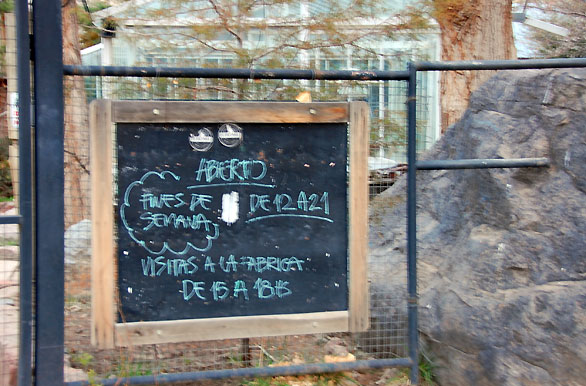 ABIERTO
FINES DE
SEMANA,
DE 12 A 21
VISITAS A LA FABRICA
DE 15 A 18:15